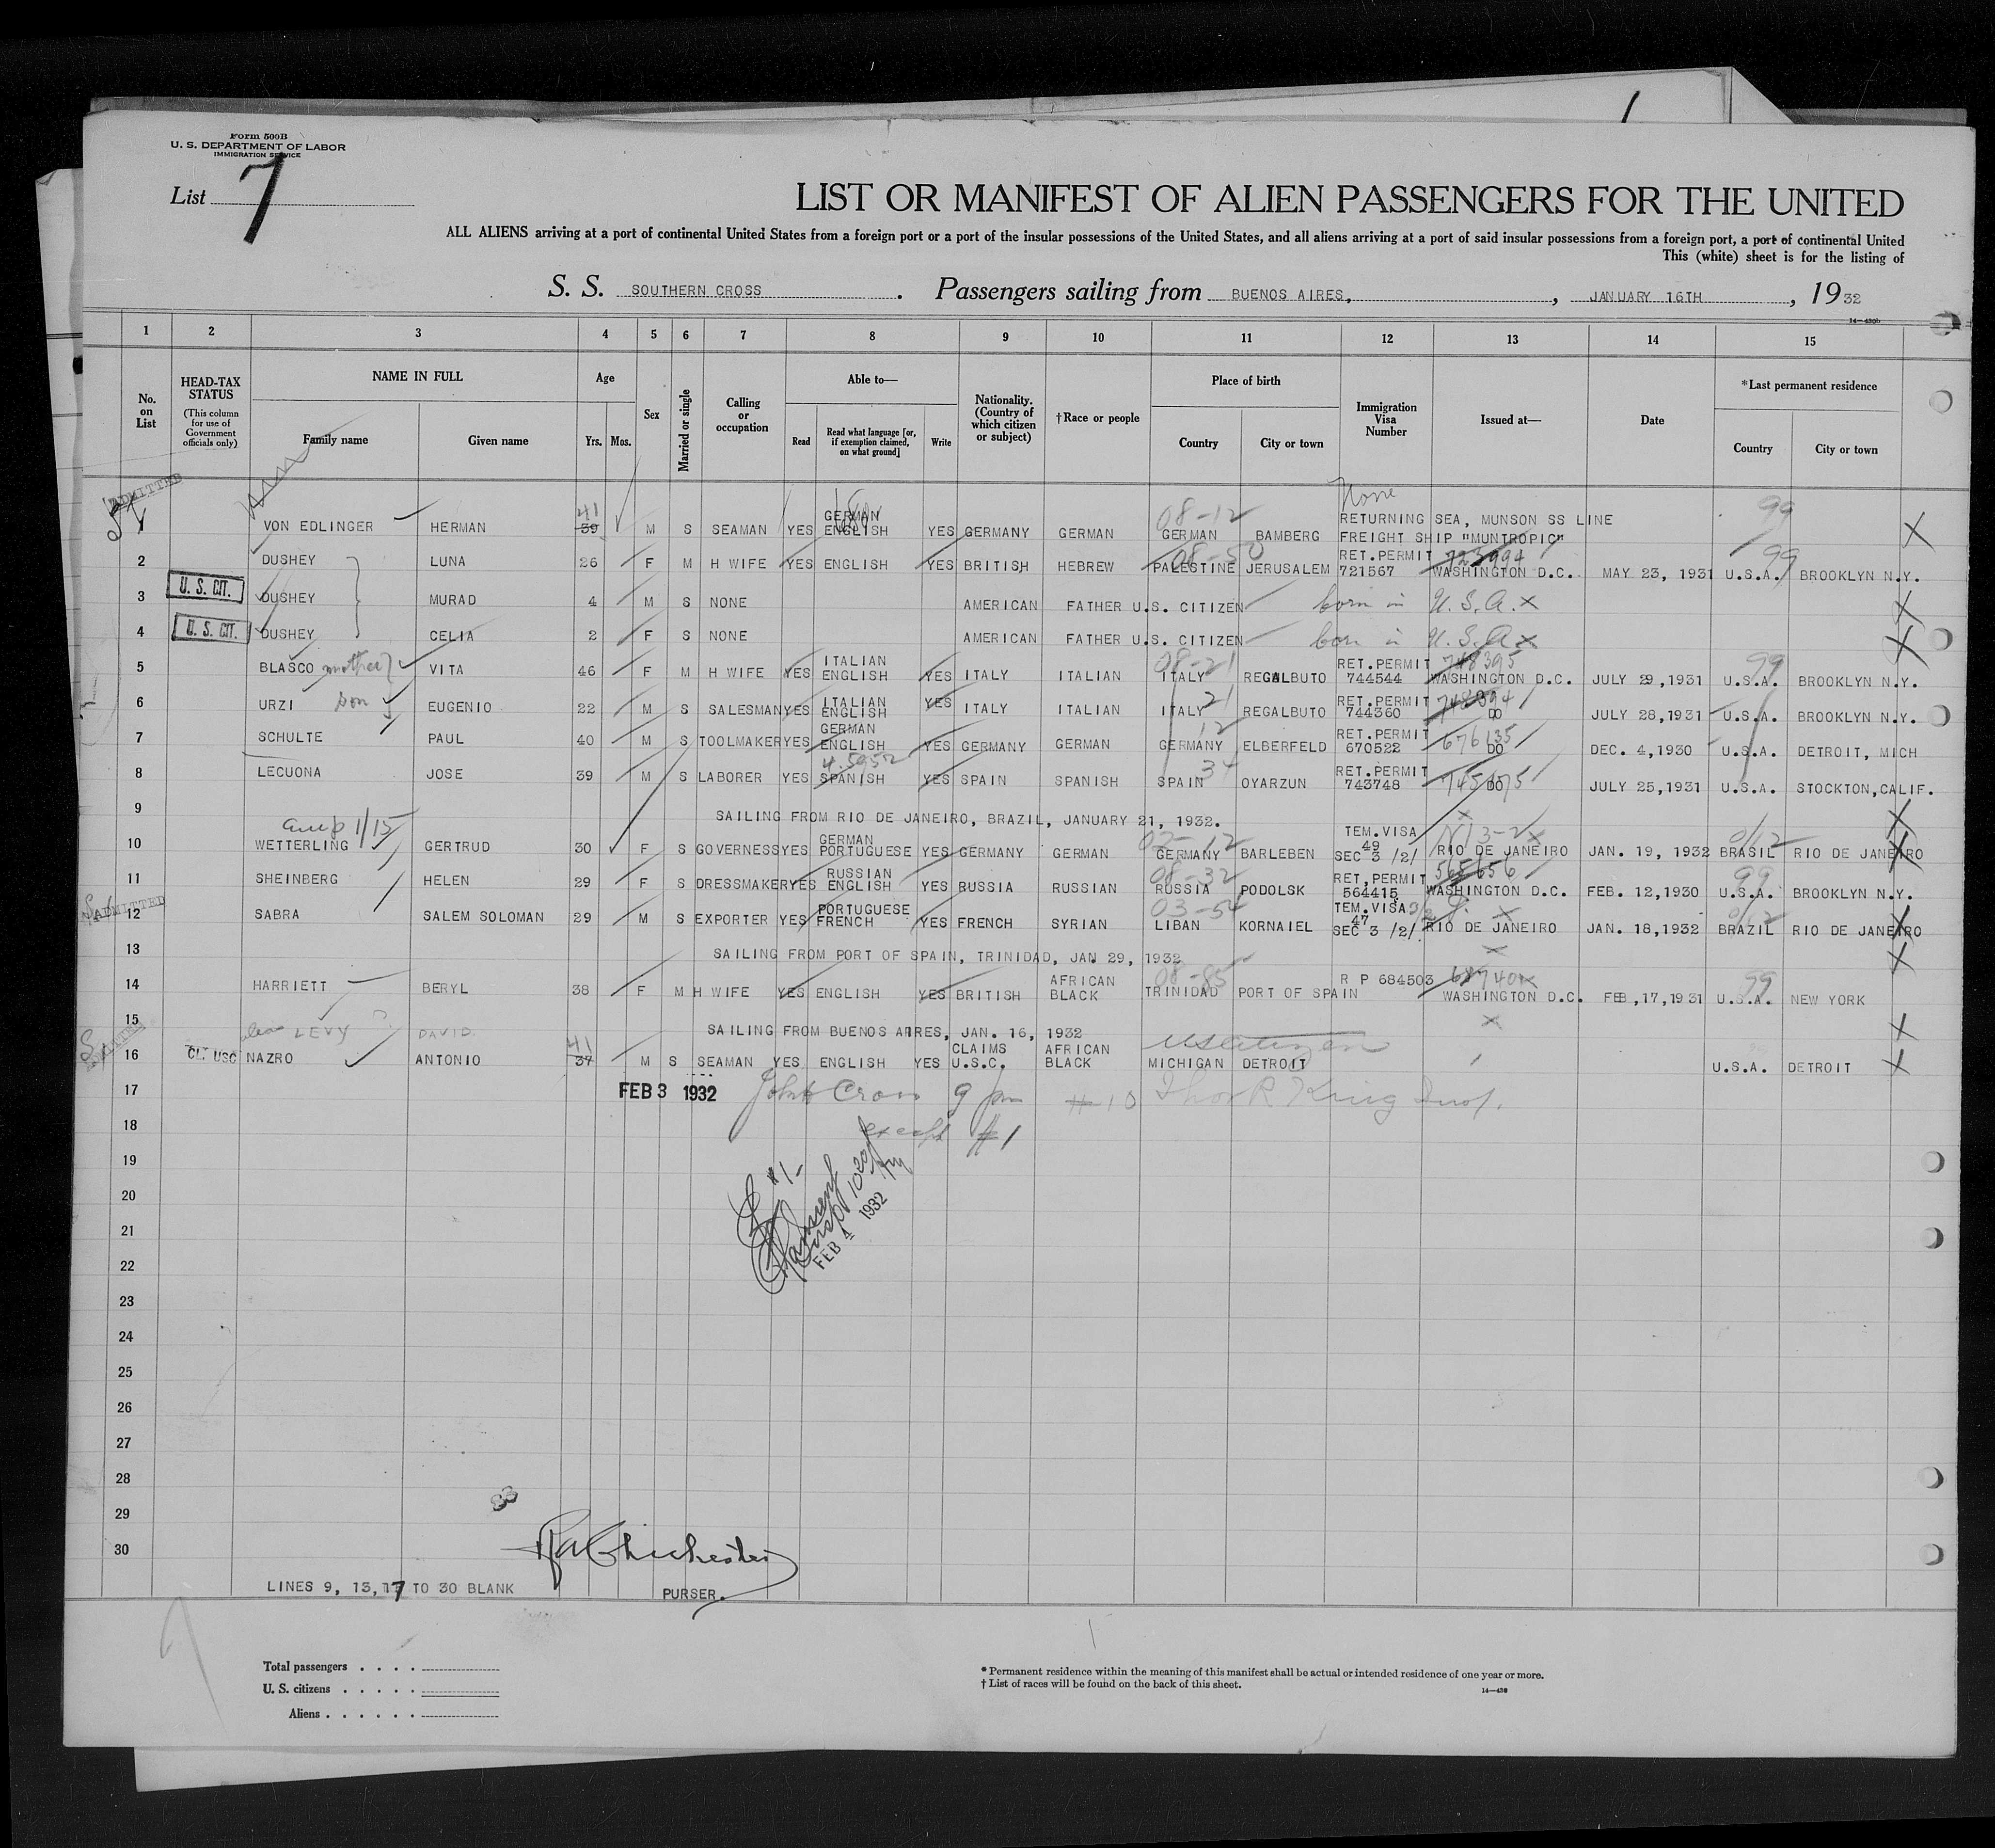 Form 500B
U. S. DEPARTMENT OF LABOR
IMMIGRATION SERVICE
List 7
LIST OR MANIFEST OF ALIEN PASSENGERS FOR THE UNITED
ALL ALIENS arriving at a port of continental United States from a foreign port or a port of the insular possessions of the United States, and all aliens arriving at a port of said insular possessions from a foreign port, a port of continental United
This (white) sheet is for the listing of
S. S. SOUTHERN CROSS. Passengers sailing from BUENOS AIRES, , JANUARY 16TH, 1932
14—430b
1 2 3 4 5 6 7 8 9 10 11 12 13 14 15
No. on List
HEAD-TAX STATUS (This column for use of Government officials only)
NAME IN FULL
Family name Given name
Age
Yrs. Mos.
Sex
Married or single
Calling or occupation
Able to—
Read Read what language [or, if exemption claimed, on what ground] Write
Nationality. (Country of which citizen or subject)
†Race or people
Place of birth
Country City or town
Immigration Visa Number
Issued at—
Date
*Last permanent residence
Country City or town
ADMITTED None
1 VON EDLINGER HERMAN 39 41 M S SEAMAN YES GERMAN ENGLISH YES GERMANY GERMAN 08-12 GERMAN BAMBERG RETURNING SEA, MUNSON SS LINE FREIGHT SHIP "MUNTROPIC" 99 X
2 DUSHEY LUNA 26 F M H WIFE YES ENGLISH YES BRITISH HEBREW 08-50 PALESTINE JERUSALEM RET.PERMIT 721567 723994 WASHINGTON D.C. MAY 23, 1931 99 U.S.A. BROOKLYN N.Y.
3 U. S. CIT. DUSHEY MURAD 4 M S NONE AMERICAN FATHER U.S. CITIZEN born in U.S.A. X X
4 U. S. CIT. DUSHEY CELIA 2 F S NONE AMERICAN FATHER U.S. CITIZEN born in U.S.A X X
5 BLASCO mother VITA 46 F M H WIFE YES ITALIAN ENGLISH YES ITALY ITALIAN 08-21 ITALY REGALBUTO RET.PERMIT 744544 748395 WASHINGTON D.C. JULY 29,1931 99 U.S.A. BROOKLYN N.Y.
6 URZI son EUGENIO 22 M S SALESMAN YES ITALIAN ENGLISH YES ITALY ITALIAN 21 ITALY REGALBUTO RET.PERMIT 744360 748394 DO JULY 28,1931 U.S.A. BROOKLYN N.Y.
7 SCHULTE PAUL 40 M S TOOLMAKER YES GERMAN ENGLISH YES GERMANY GERMAN 12 GERMANY ELBERFELD RET.PERMIT 670522 676135 DO DEC. 4,1930 U.S.A. DETROIT, MICH
8 LECUONA JOSE 39 M S LABORER YES SPANISH YES SPAIN SPANISH 34 SPAIN OYARZUN RET.PERMIT 743748 DO JULY 25,1931 U.S.A. STOCKTON,CALIF.
9 SAILING FROM RIO DE JANEIRO, BRAZIL, JANUARY 21, 1932. X X
10 WETTERLING GERTRUD 30 F S GOVERNESS YES GERMAN PORTUGUESE YES GERMANY GERMAN 12 GERMANY BARLEBEN TEM.VISA 49 SEC 3 /2/ RIO DE JANEIRO JAN. 19, 1932 BRASIL RIO DE JANEIRO X
11 SHEINBERG HELEN 29 F S DRESSMAKER YES RUSSIAN ENGLISH YES RUSSIA RUSSIAN 08-32 RUSSIA PODOLSK RET,PERMIT 564415 565656 WASHINGTON D.C. FEB. 12,1930 99 U.S.A. BROOKLYN N.Y.
ADMITTED
12 SABRA SALEM SOLOMAN 29 M S EXPORTER YES PORTUGUESE FRENCH YES FRENCH SYRIAN 03-54 LIBAN KORNAIEL TEM.VISA 47 SEC 3 /2/ RIO DE JANEIRO JAN. 18,1932 BRAZIL RIO DE JANEIRO X
13 SAILING FROM PORT OF SPAIN, TRINIDAD, JAN 29, 1932 X X
14 HARRIETT BERYL 38 F M H WIFE YES ENGLISH YES BRITISH AFRICAN BLACK 08-85 TRINIDAD PORT OF SPAIN R P 684503 WASHINGTON D.C. FEB,17,1931 99 U.S.A. NEW YORK
15 alias LEVY ? DAVID SAILING FROM BUENOS AIRES, JAN. 16, 1932 X X
16 CL. USC NAZRO ANTONIO 37 41 M S SEAMAN YES ENGLISH YES CLAIMS U.S.C. AFRICAN BLACK US citizen MICHIGAN DETROIT U.S.A. DETROIT X
17 FEB 3 1932 John Cron 9 pm #10 Thos R King Insp.
18 except #1
19
#1- 1020 Am
20
Insp
21
FEB 4 1932
22
23
24
25
26
27
28
29
30
R A Chichester
LINES 9, 13, 17 TO 30 BLANK PURSER.
Total passengers . . . .
U. S. citizens . . . . .
Aliens . . . . . .
* Permanent residence within the meaning of this manifest shall be actual or intended residence of one year or more.
† List of races will be found on the back of this sheet.
14—430